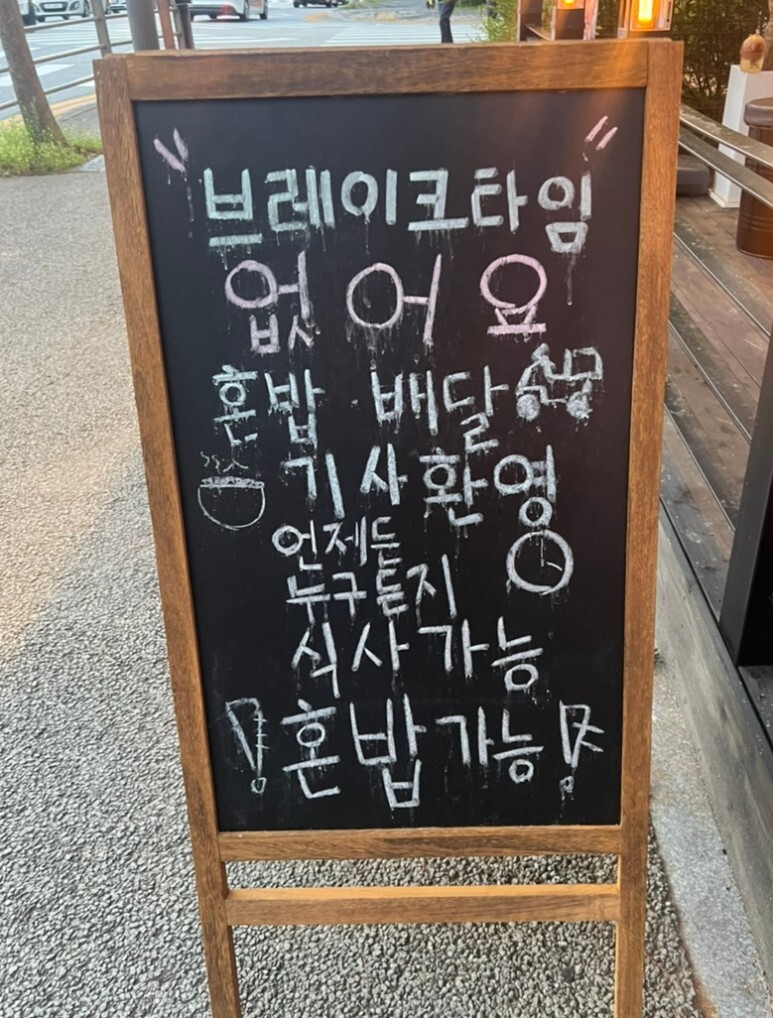 "브레이크타임"
없어요
혼밥 배달
기사환영
언제든
누구든지
식사가능
혼밥가능